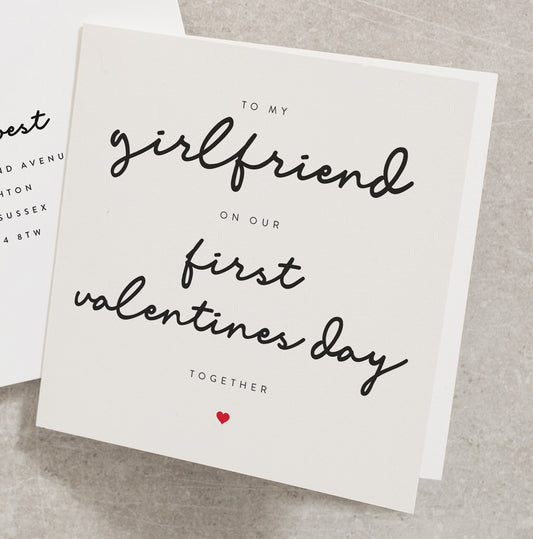 TO MY
girlfriend
ON OUR
first
valentines day
TOGETHER
SUSSEX
4 8TW